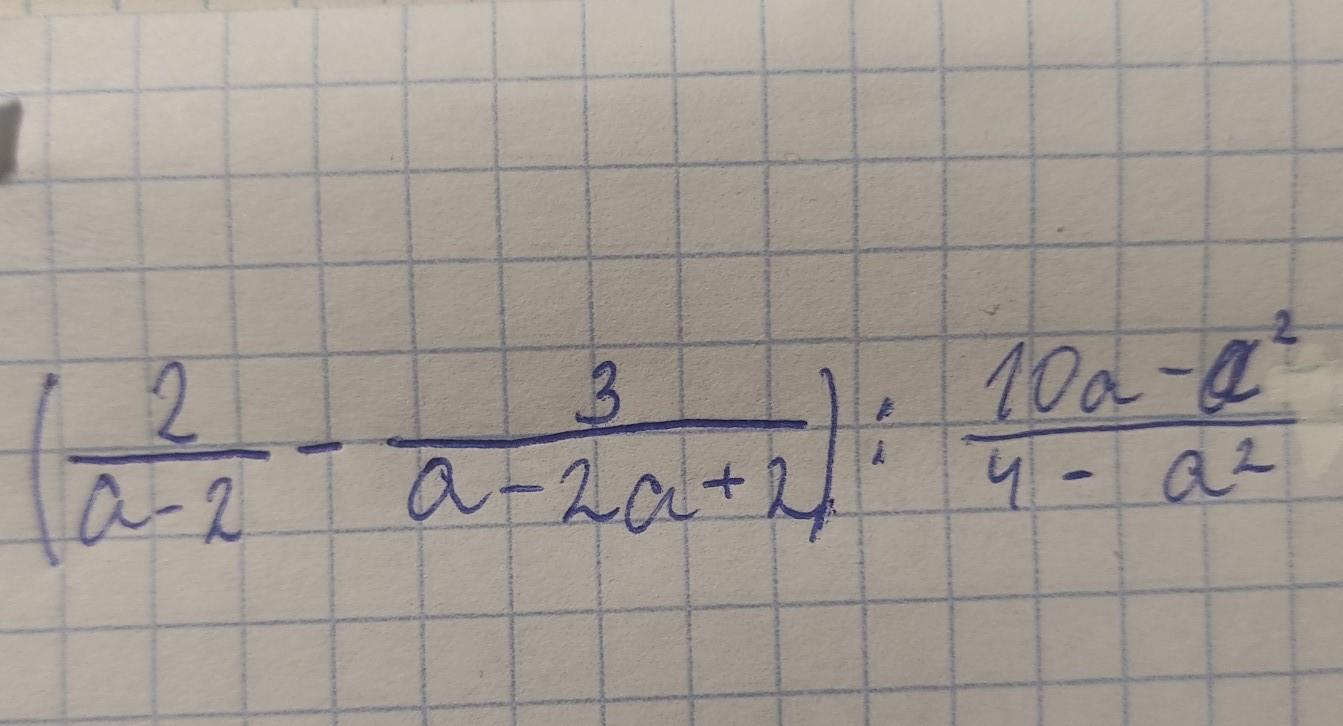 (2/(a-2) - 3/(a-2a+2)) : (10a-a²)/(4-a²)